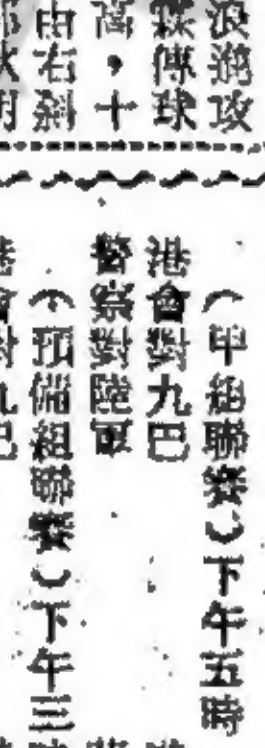 浪湧攻
傳球
高，十
由右斜
（甲組聯賽）下午五時
港會對九巴
警察對陸軍
（預備組聯賽）下午三
港會對九巴